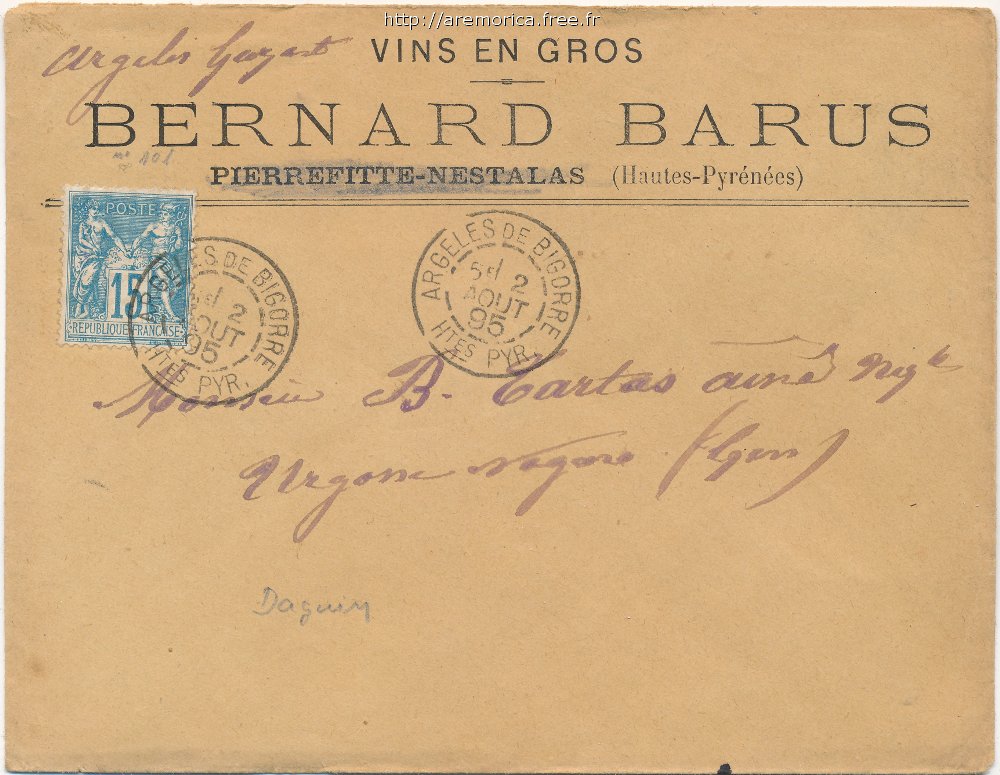 http://aremorica.free.fr
Argeles Gazost
VINS EN GROS
BERNARD BARUS
nº 101
PIERREFITTE-NESTALAS (Hautes-Pyrénées)
POSTE
15
REPUBLIQUE FRANÇAISE
ARGELES DE BIGORRE
2
AOUT
95
HTES PYR.
ARGELES DE BIGORRE
5E 2
AOUT
95
HTES PYR.
Monsieur B. Tartas ainé Ngt
Urgosse Nogaro (Gers)
Daguin